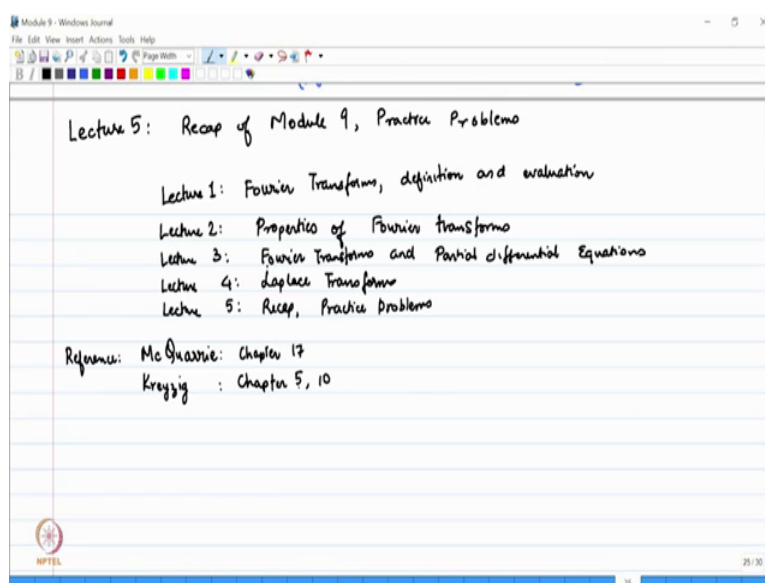 Module 9 - Windows Journal
File Edit View Insert Actions Tools Help
Page Width
B I
Lecture 5: Recap of Module 9, Practice Problems
Lecture 1: Fourier Transforms, definition and evaluation
Lecture 2: Properties of Fourier transforms
Lecture 3: Fourier Transforms and Partial differential Equations
Lecture 4: Laplace Transforms
Lecture 5: Recap, Practice Problems
Reference: McQuarrie: Chapter 17
Kreyzig : Chapter 5, 10
NPTEL
25/30